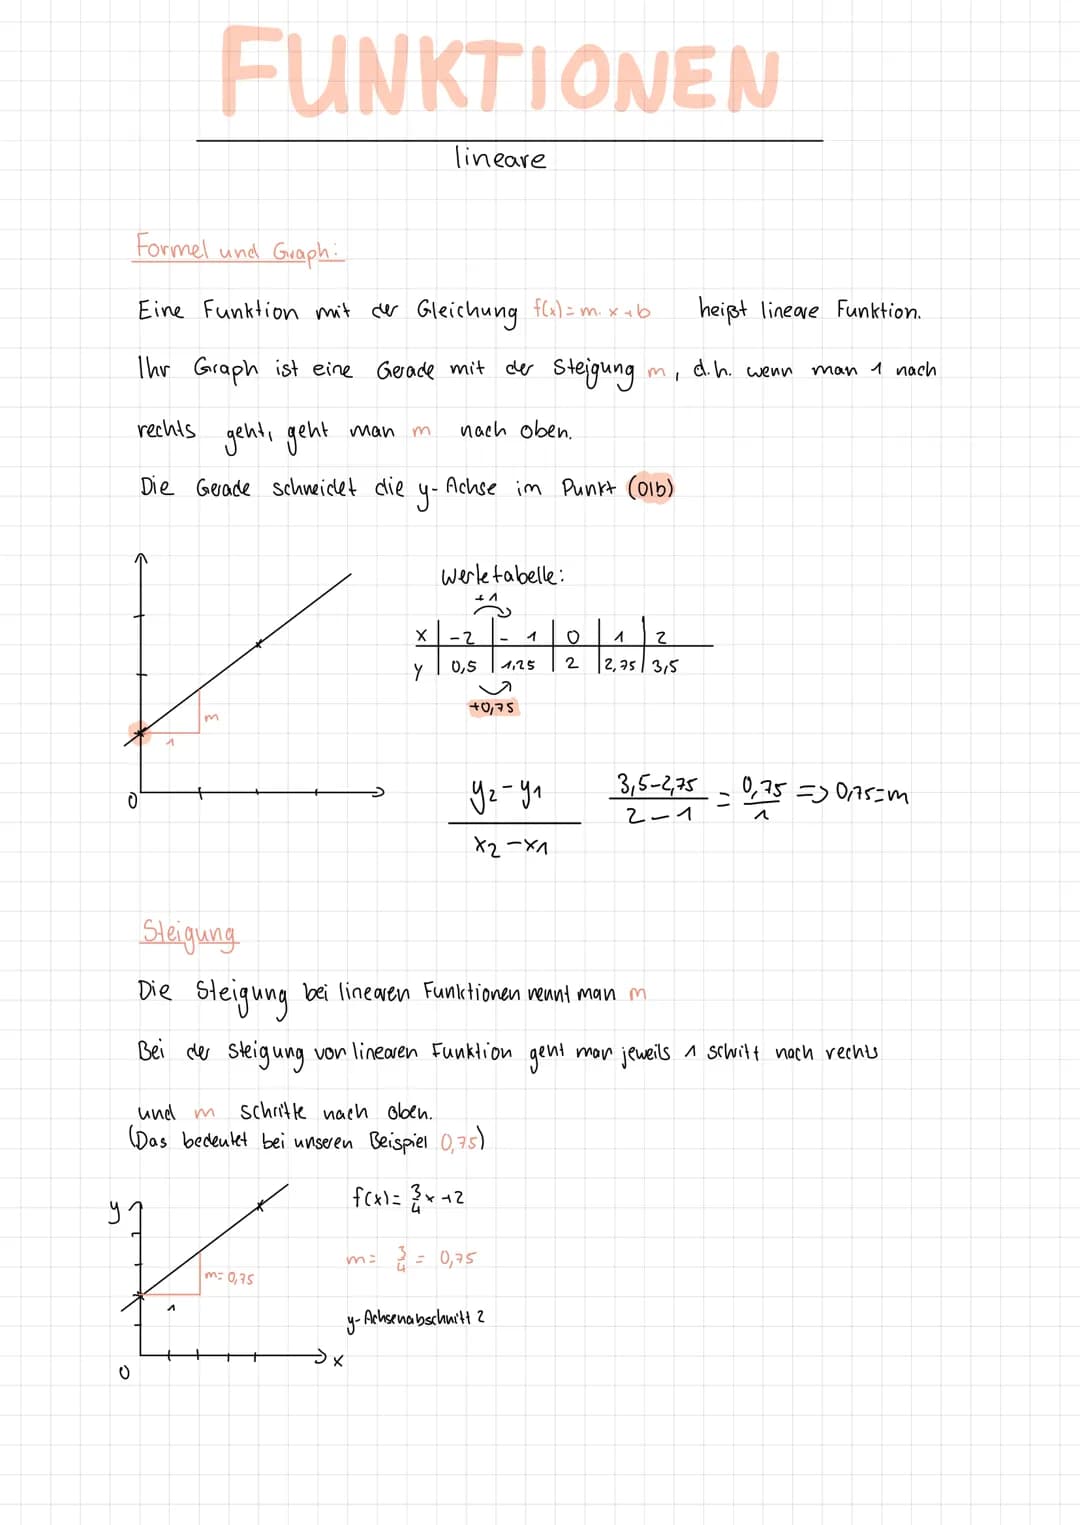 FUNKTIONEN
lineare
Formel und Graph:
Eine Funktion mit der Gleichung f(x)=m·x+b heißt lineare Funktion.
Ihr Graph ist eine Gerade mit der Steigung m, d.h. wenn man 1 nach
rechts geht, geht man m nach oben.
Die Gerade schneidet die y-Achse im Punkt (0|b)
Wertetabelle:
+1
x | -2 | -1 | 0 | 1 | 2
y | 0,5 | 1,25 | 2 | 2,75 | 3,5
+0,75
m
1
0
y2-y1 3,5-2,75 = 0,75 => 0,75=m
x2-x1 2-1 1
Steigung
Die Steigung bei linearen Funktionen nennt man m
Bei der Steigung von linearen Funktion geht man jeweils 1 schritt nach rechts
und m schritte nach oben.
(Das bedeutet bei unseren Beispiel 0,75)
y
f(x)= 3/4 x+2
m= 3/4 = 0,75
m=0,75
1
y-Achsenabschnitt 2
x
0